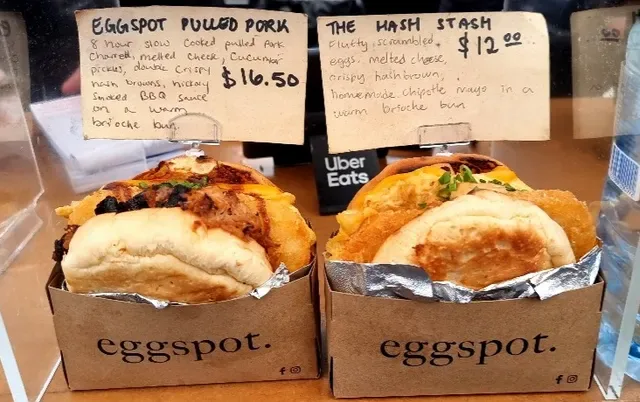 EGGSPOT PULLED PORK
8 hour slow cooked pulled pork
melted cheese, cucumber
pickles, double crispy
hash browns, hickory
smoked BBQ sauce
on a warm
brioche bun
$16.50
THE HASH STASH
Fluffy scrambled
eggs, melted cheese,
crispy hashbrown,
homemade chipotle mayo in a
warm brioche bun
$12.00
Uber
Eats
eggspot.
eggspot.